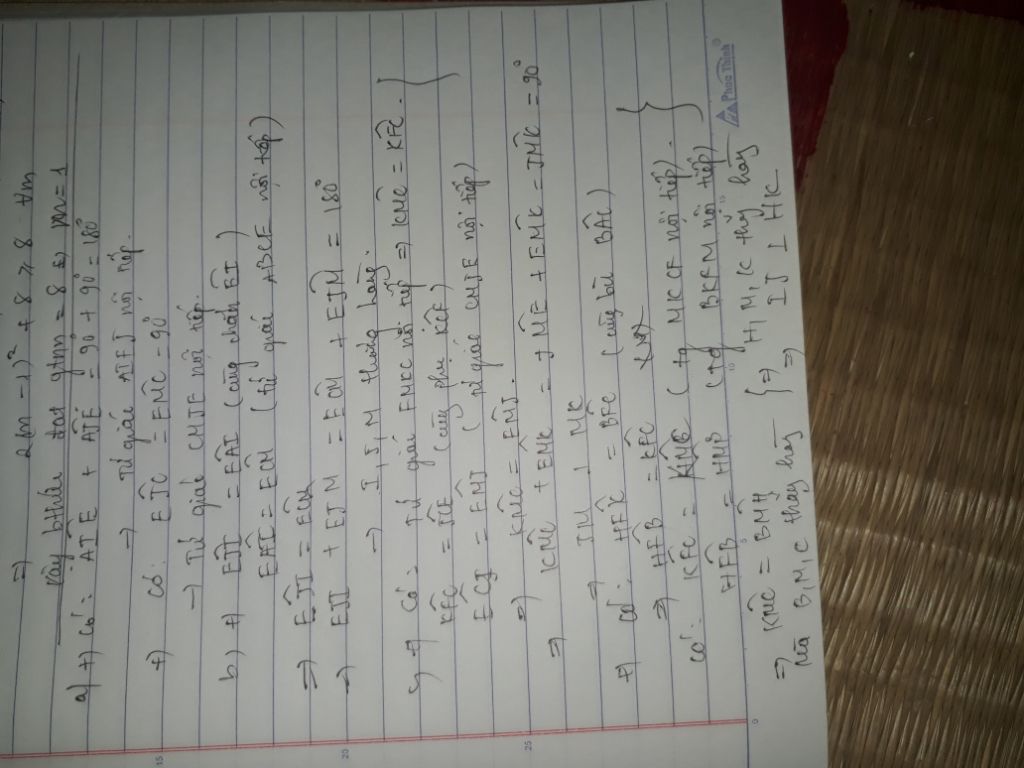 => 2(m-1)² + 8 ≥ 8 ∀m
Vậy bthức đạt gtnn = 8 <=> m = 1
a) +) Có: AÎE + AĴE = 90° + 90° = 180°
=> Tứ giác AIEJ nội tiếp.
+) Có: EĴC = EM̂C = 90°
=> Tứ giác CMJE nội tiếp.
b) +) EĴI = EÂI (cùng chắn EI)
EÂI = EĈM (tứ giác ABCE nội tiếp)
=> EĴI = EĈM
=> EĴI + EĴM = EĈM + EĴM = 180°
=> I, J, M thẳng hàng.
c) +) Có: Tứ giác FMKC nội tiếp => KM̂C = KF̂C.
KF̂C = JĈE (cùng phụ KĈF)
EĈJ = EM̂J (tứ giác CMJE nội tiếp)
=> KM̂C = EM̂J.
=> KM̂C + EM̂K = JM̂E + EM̂K = JM̂K = 90°
=> IM ⊥ MK
+) Có: HF̂C = BF̂C (cùng bù BÂC)
=> HF̂B = KF̂C
Có: KF̂C = KM̂C (tg MKCF nội tiếp).
HF̂B = HM̂B (tg nội tiếp)
=> KM̂C = BM̂H
Mà B, M, C thẳng hàng
=> H, M, K thẳng hàng
=> IJ ⊥ HK
Phong Thịnh
15
20
25
0
5
10